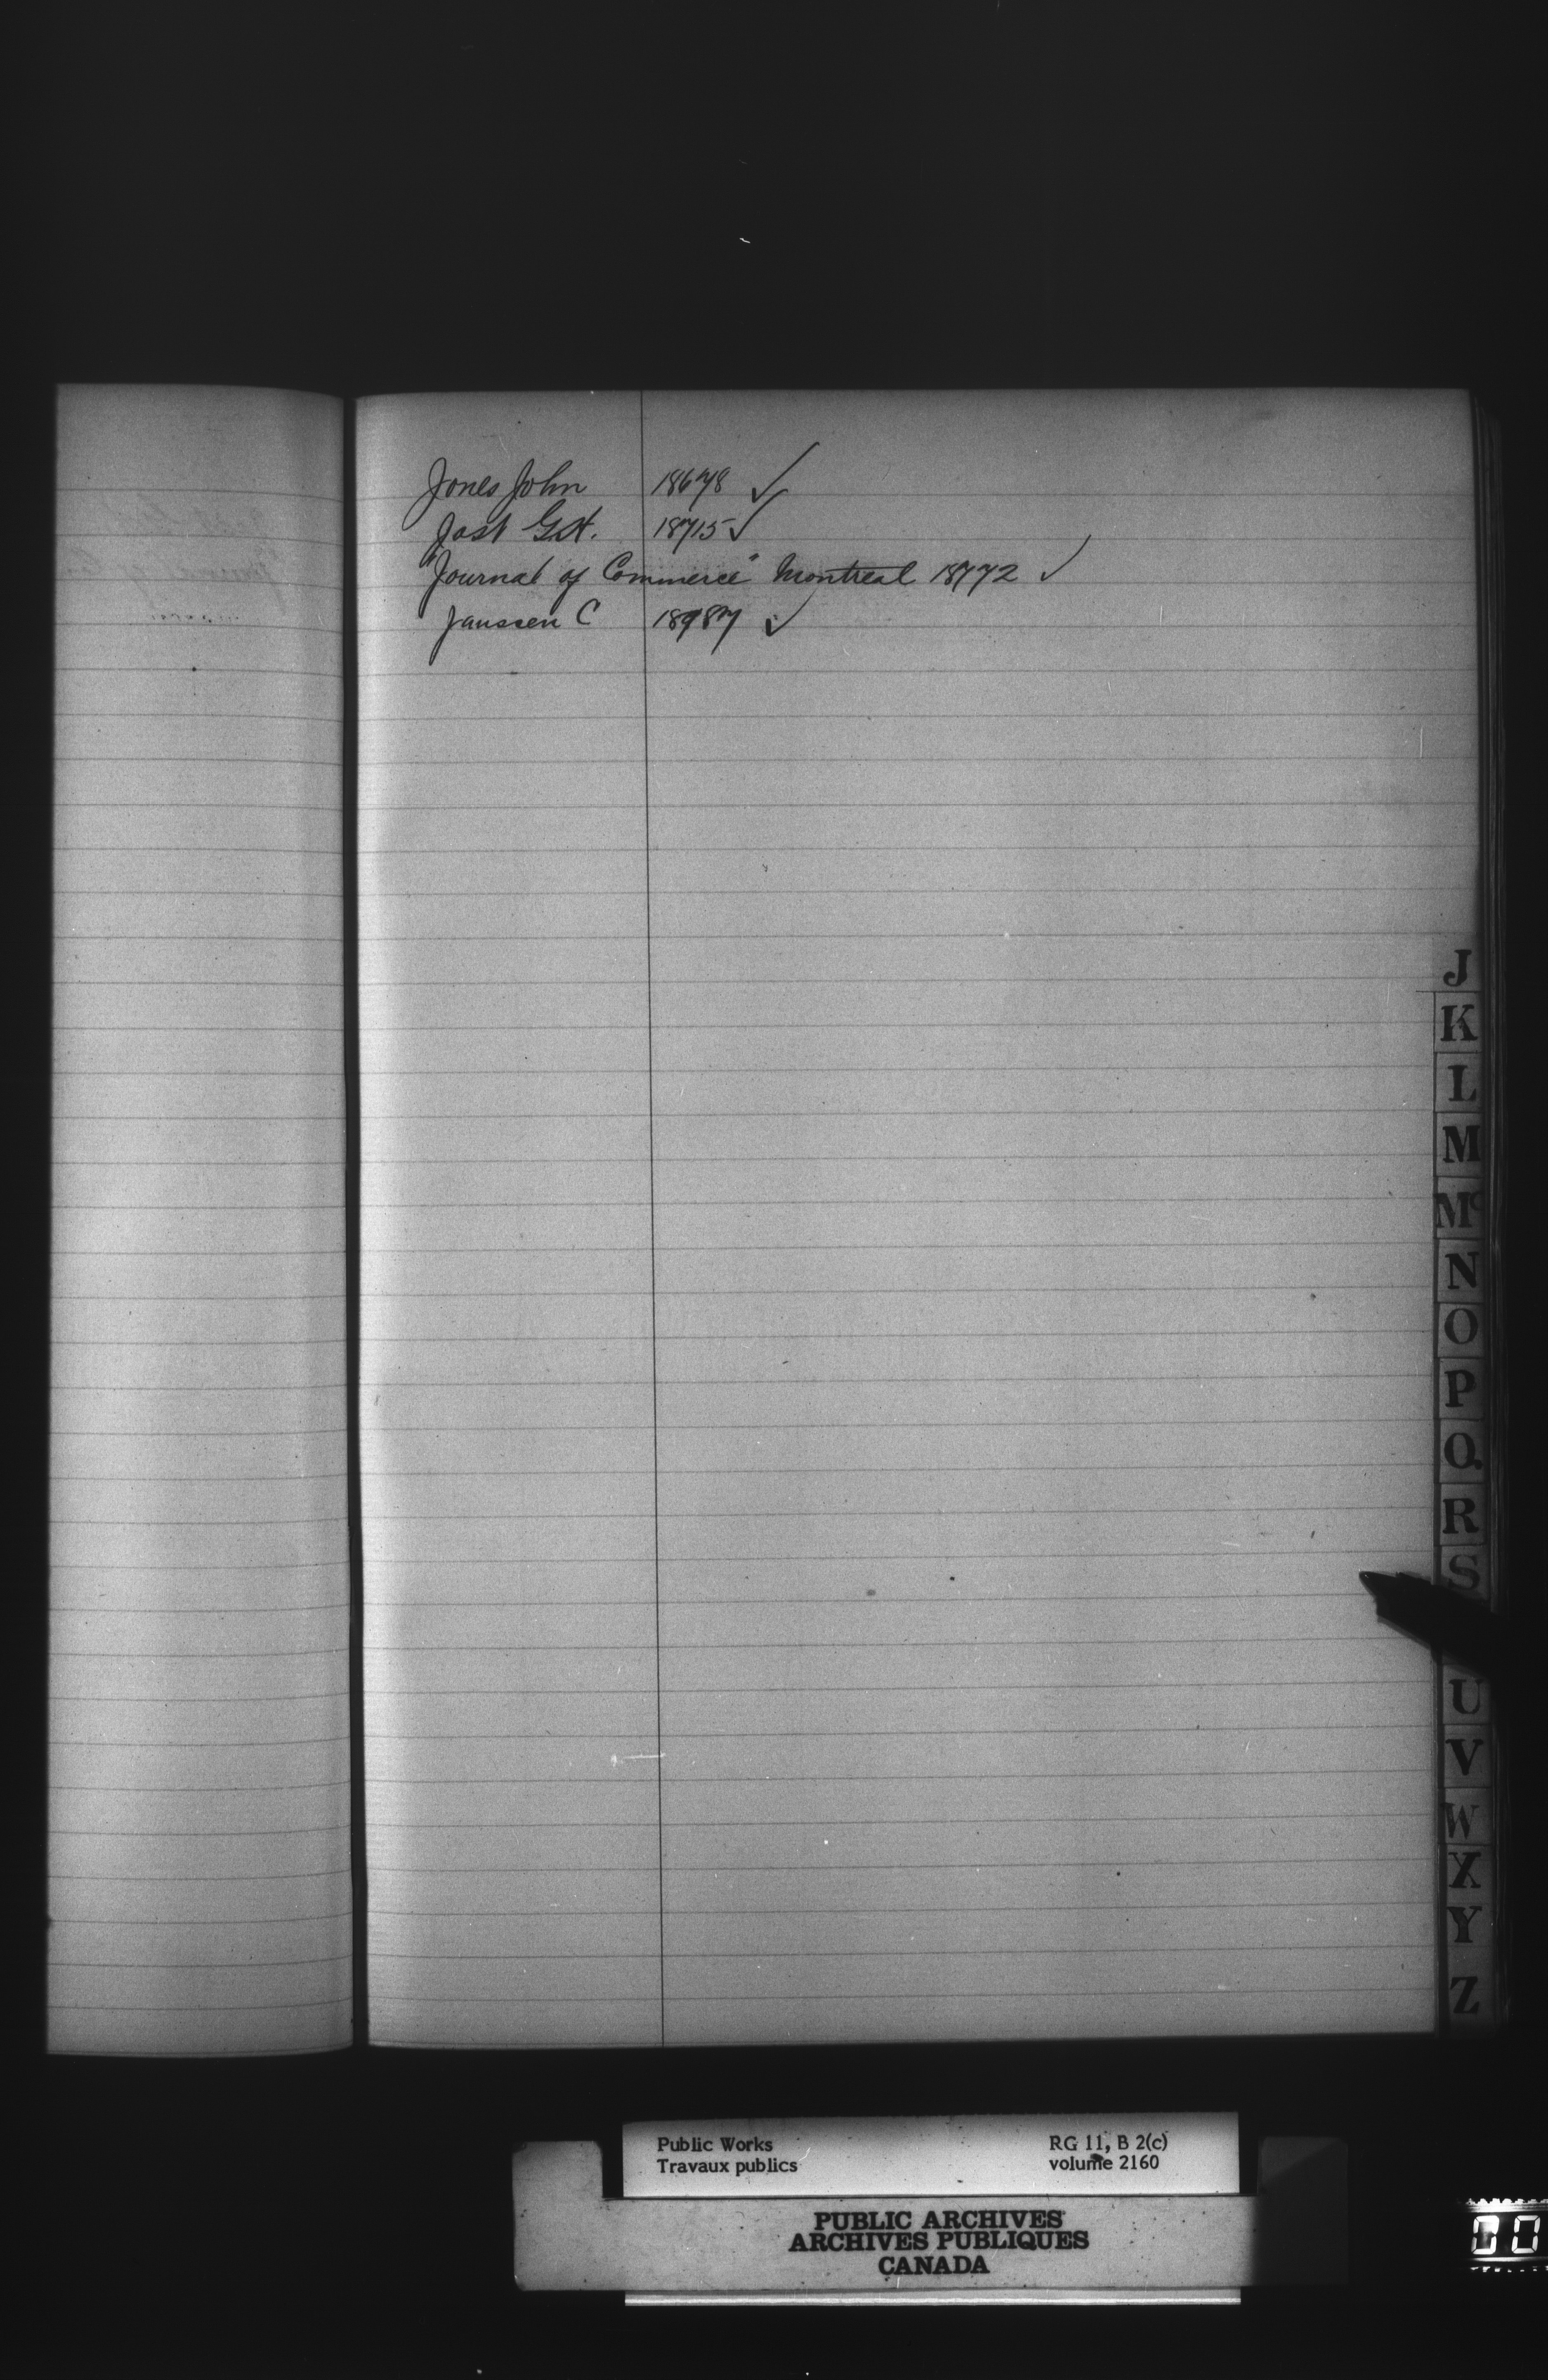 Jones John 18678 ✓
Jost G.H. 18715 ✓
"Journal of Commerce" Montreal 18772 ✓
Janssen C 18987 ✓
J
K
L
M
Mc
N
O
P
Q
R
S
U
V
W
X
Y
Z
Public Works RG 11, B 2(c)
Travaux publics volume 2160
PUBLIC ARCHIVES
ARCHIVES PUBLIQUES
CANADA
00